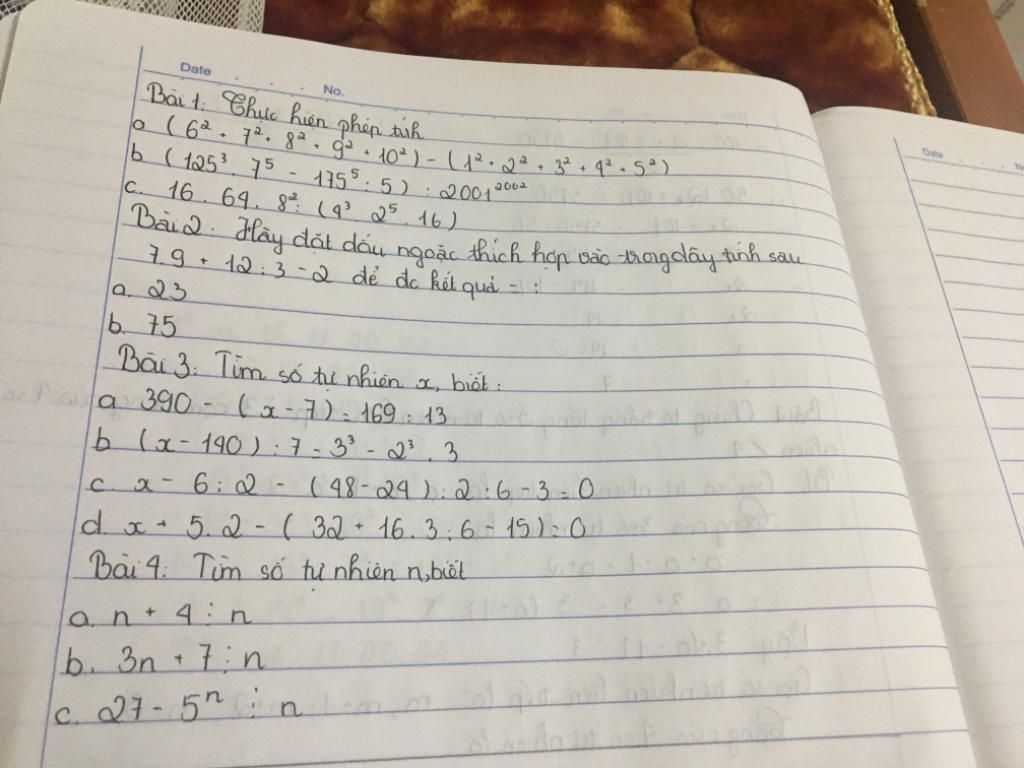 Date No.
Bài 1: Thực hiện phép tính
a (6² + 7² + 8² + 9² + 10²) - (1² + 2² + 3² + 4² + 5²)
b (125³ . 7⁵ - 175⁵ : 5) : 2001²⁰⁰²
c. 16 . 64 . 8² : (4³ . 2⁵ . 16)
Bài 2. Hãy đặt dấu ngoặc thích hợp vào trong dãy tính sau
7.9 + 12 : 3 - 2 để đc kết quả = :
a. 23
b. 75
Bài 3: Tìm số tự nhiên x, biết:
a 390 - (x - 7) = 169 : 13
b (x - 140) : 7 = 3³ - 2³ . 3
c. x - 6 : 2 - (48 - 24) : 2 : 6 - 3 = 0
d. x + 5.2 - (32 + 16.3 : 6 - 15) = 0
Bài 4: Tìm số tự nhiên n, biết
a. n + 4 ⋮ n
b. 3n + 7 ⋮ n
c. 27 - 5ⁿ ⋮ n
Date No.